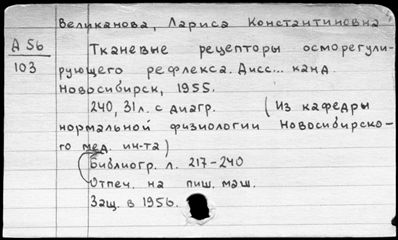 Великанова, Лариса Константиновна
А 56
103
Тканевые рецепторы осморегули-
рующего рефлекса. Дисс... канд.
Новосибирск, 1955.
240, 31 л. с диагр. (Из кафедры
нормальной физиологии Новосибирско-
го мед. ин-та)
Библиогр. л. 217-240
Отпеч. на пиш. маш.
Защ. в 1956.